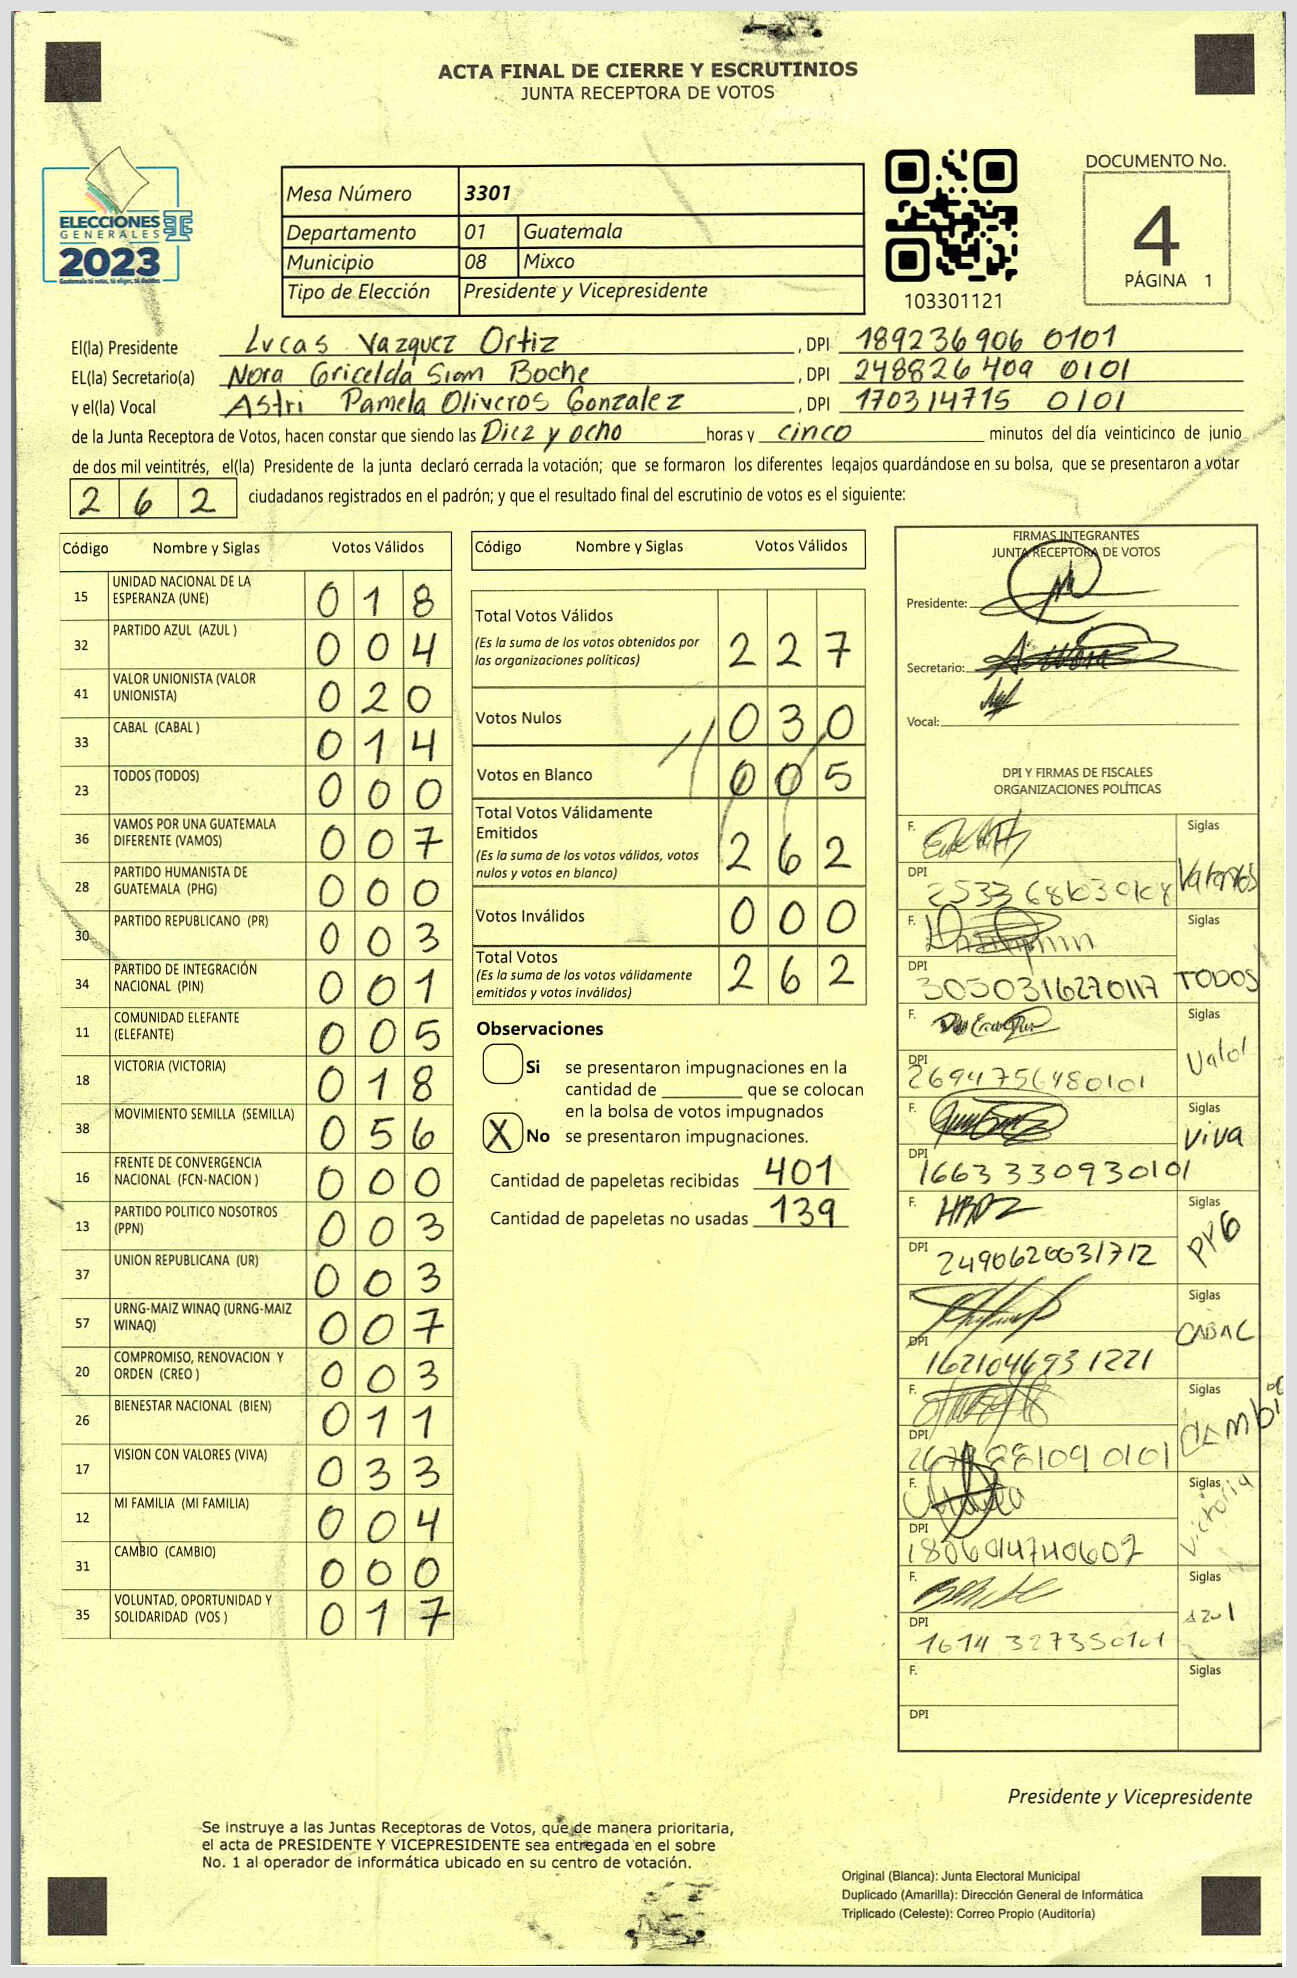 ACTA FINAL DE CIERRE Y ESCRUTINIOS
JUNTA RECEPTORA DE VOTOS
ELECCIONES
GENERALES
2023
Mesa Número 3301
Departamento 01 Guatemala
Municipio 08 Mixco
Tipo de Elección Presidente y Vicepresidente
103301121
DOCUMENTO No.
4
PÁGINA 1
El(la) Presidente Lucas Vazquez Ortiz, DPI 189236906 0101
EL(la) Secretario(a) Nora Gricelda Sion Boche, DPI 248826409 0101
y el(la) Vocal Astri Pamela Oliveros Gonzalez, DPI 170314715 0101
de la Junta Receptora de Votos, hacen constar que siendo las Diez y ocho horas y cinco minutos del día veinticinco de junio
de dos mil veintitrés, el(la) Presidente de la junta declaró cerrada la votación; que se formaron los diferentes legajos guardándose en su bolsa, que se presentaron a votar
262 ciudadanos registrados en el padrón; y que el resultado final del escrutinio de votos es el siguiente:
Código Nombre y Siglas Votos Válidos
15 UNIDAD NACIONAL DE LA ESPERANZA (UNE) 018
32 PARTIDO AZUL (AZUL ) 004
41 VALOR UNIONISTA (VALOR UNIONISTA) 020
33 CABAL (CABAL ) 014
23 TODOS (TODOS) 000
36 VAMOS POR UNA GUATEMALA DIFERENTE (VAMOS) 007
28 PARTIDO HUMANISTA DE GUATEMALA (PHG) 000
30 PARTIDO REPUBLICANO (PR) 003
34 PARTIDO DE INTEGRACIÓN NACIONAL (PIN) 001
11 COMUNIDAD ELEFANTE (ELEFANTE) 005
18 VICTORIA (VICTORIA) 018
38 MOVIMIENTO SEMILLA (SEMILLA) 056
16 FRENTE DE CONVERGENCIA NACIONAL (FCN-NACION ) 000
13 PARTIDO POLITICO NOSOTROS (PPN) 003
37 UNION REPUBLICANA (UR) 003
57 URNG-MAIZ WINAQ (URNG-MAIZ WINAQ) 007
20 COMPROMISO, RENOVACION Y ORDEN (CREO ) 003
26 BIENESTAR NACIONAL (BIEN) 011
17 VISION CON VALORES (VIVA) 033
12 MI FAMILIA (MI FAMILIA) 004
31 CAMBIO (CAMBIO) 000
35 VOLUNTAD, OPORTUNIDAD Y SOLIDARIDAD (VOS ) 017
Código Nombre y Siglas Votos Válidos
Total Votos Válidos 227
(Es la suma de los votos obtenidos por
las organizaciones políticas)
Votos Nulos 030
Votos en Blanco 005
Total Votos Válidamente
Emitidos 262
(Es la suma de los votos válidos, votos
nulos y votos en blanco)
Votos Inválidos 000
Total Votos 262
(Es la suma de los votos válidamente
emitidos y votos inválidos)
Observaciones
Si se presentaron impugnaciones en la
cantidad de ________ que se colocan
en la bolsa de votos impugnados
X No se presentaron impugnaciones.
Cantidad de papeletas recibidas 401
Cantidad de papeletas no usadas 139
FIRMAS INTEGRANTES
JUNTA RECEPTORA DE VOTOS
Presidente:
Secretario:
Vocal:
DPI Y FIRMAS DE FISCALES
ORGANIZACIONES POLÍTICAS
F. Siglas
DPI
F. Siglas
DPI 3050316270117 TODOS
F. Siglas
DPI 2694756480101 Valor
F. Siglas
DPI 1663330930101 VIVA
F. Siglas
DPI 2490620031712
F. Siglas
DPI 1621046931221 CABAL
F. Siglas
DPI CAMBIO
F. Siglas
DPI 1806014740607 Victoria
F. Siglas
DPI 1614327350101 Azul
F. Siglas
DPI
Presidente y Vicepresidente
Se instruye a las Juntas Receptoras de Votos, que de manera prioritaria,
el acta de PRESIDENTE Y VICEPRESIDENTE sea entregada en el sobre
No. 1 al operador de informática ubicado en su centro de votación.
Original (Blanca): Junta Electoral Municipal
Duplicado (Amarilla): Dirección General de Informática
Triplicado (Celeste): Correo Propio (Auditoría)